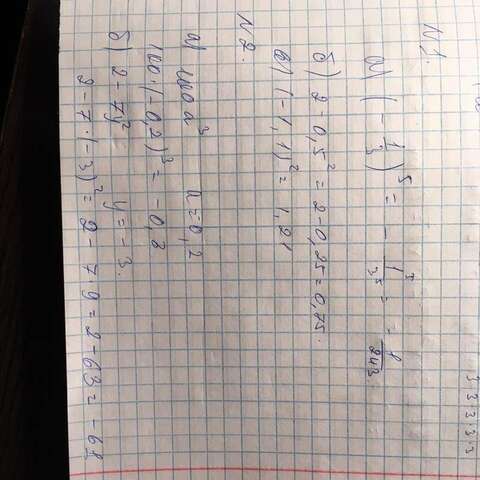 N1.
а) (-1/3)^5 = - 1^5/3^5 = - 1/243.
3·3·3·3·3
б) 2-0,5² = 2-0,25=0,75.
в) (-1,1)² = 1,21
N2.
а) 100a³ a=0,2
100(-0,2)³ = -0,8
б) 2-7y² y=-3.
2-7·(-3)² = 2-7·9=2-63= -61